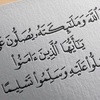 اللَّهَ وَمَلَٰٓئِكَتَهُۥ يُصَلُّونَ
يَٰٓأَيُّهَا الَّذِينَ ءَامَنُوا
لُّوا عَلَيْهِ وَسَلِّمُوا تَسْلِيمًا